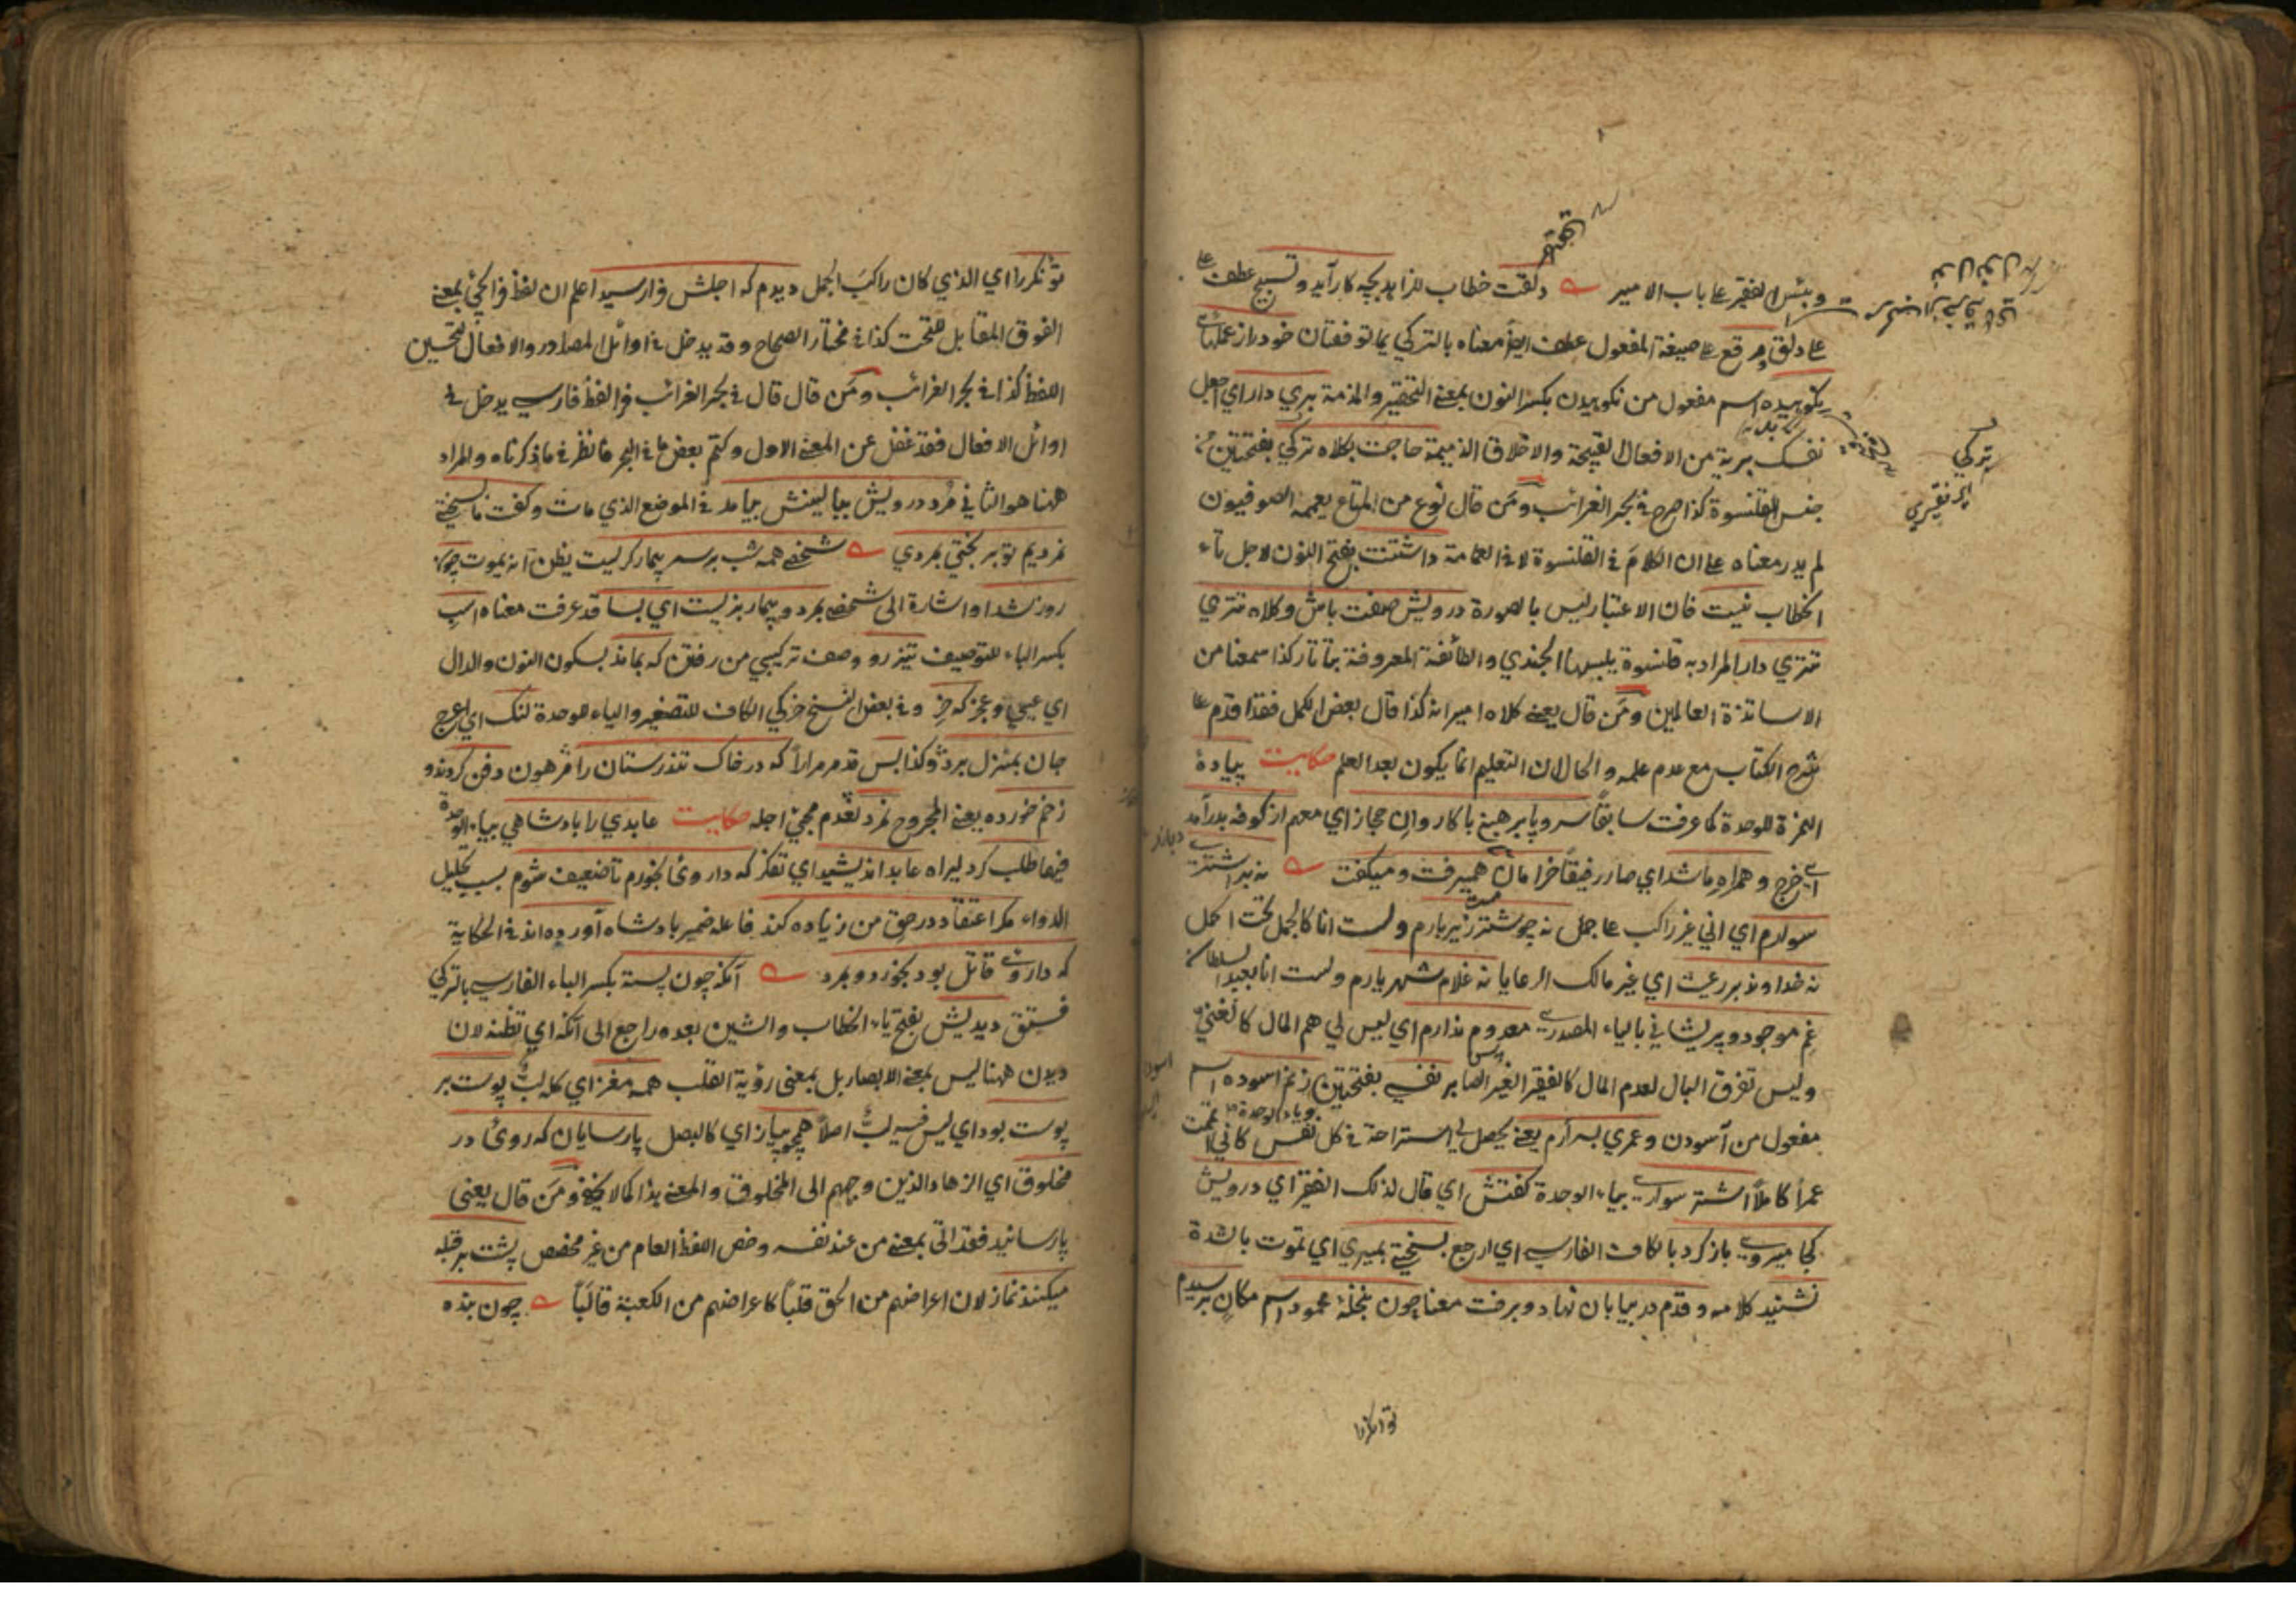 وبئس الفقير على باب الامير دلقت خطاب للزاهد بچه كار آيد وتسبيح عطف على
على دلق ومرقع على صيغة المفعول عطف ايضا معناه بالتركي يمالو فغتان خود را از عملهاى
نكوهيده اسم مفعول من نكوهيدن بكسر النون بمعنى التحقير والمذمة بري دار اي اجعل
نفسك برية من الافعال القبيحة والاخلاق الذميمة حاجت بكلاه تركي بفتحتين
جنس القلنسوة كذا صرح في بحر الغرائب ومن قال نوع من المتاع يعممه الصوفيون
لم يدر معناه على ان الكلام في القلنسوة لا في العمامة داشتنت بفتح النون لاجل تاء
الخطاب نيست فان الاعتبار ليس بالصورة درويش صفت باش وكلاه تتري
تتري دار المراد به قلنسوة يلبسها الجندي والطائفة المعروفة بتاتار كذا سمعنا من
الاساتذة العالمين ومن قال يعني كلاه اميرانه كذا قال بعض الكمل فقد اقدم على
شرح الكتاب مع عدم علمه والحال ان التعليم انما يكون بعد العلم حكايت پيادهٔ
الهمزة للوحدة كما عرفت سابقا سر وپا برهنه با كاروان حجاز اي معهم از كوفه بدر آمد
اي خرج وهمراه ما شد اي صار رفيقا خرامان هميرفت وميكفت نه بر اشتر
سوارم اي اني غير راكب على جمل نه چو شتر زير بارم ولست انا كالجمل تحت الحمل
نه خداوند رعيت اي غير مالك الرعايا نه غلام شهريارم ولست انا بعبد السلطان
غم موجود وپريشاني بالياء المصدرى معدوم ندارم اي ليس لي هم المال كالغني
وليس تفرق البال لعدم المال كالفقير الغير الصابر نفسي بفتحتين ميزنم آسوده اسم
مفعول من آسودن وعمري بسر آرم يعني يحصل لي استراحة في كل نفس كاني اتممت
عمرا كاملا اشتر سوارى بياء الوحدة كفتش اي قال لذلك الفقير اي درويش
كجا ميروى باز كرد بالكاف الفارسي اي ارجع بسختي بميري اي تموت بالشدة
نشنيد كلامه وقدم در بيابان نهاد وبرفت معنا چون بنخلهٔ محمود اسم مكان برسيديم
توانكررا
توانكررا اي الذي كان راكب الجمل ديدم كه اجلش فرا رسيد اعلم ان لفظ فرا يجئ بمعنى
الفوق المقابل للتحت كذا في مختار الصحاح وقد يدخل في اوائل المصادر والافعال لتحسين
اللفظ كذا في بحر الغرائب ومن قال قال في بحر الغرائب فرا لفظ فارسي يدخل في
اوائل الافعال فقد غفل عن المعنى الاول وكتم بعض ما في البحر فانظر في ما ذكرناه والمراد
ههنا هو الثاني مرد درويش ببالينش بيامد في الموضع الذي مات وكفت ما بسختي
نمرديم تو بر بختي بمردي شخصى همه شب بر سر بيمار كريست يظن انه يموت چون
روز شد او اشارة الى شخص بمرد وبيمار بزيست اي بسا قد عرفت معناه اسب
بكسر الباء للتوصيف تيزرو وصف تركيبي من رفتن كه بماند بسكون النون والدال
اي عيي وعجز كه خر وفي بعض النسخ خركي الكاف للتصغير والياء للوحدة لنك اي اعرج
جان بمنزل برد وكذا بس قد مر مرارا كه در خاك تندرستان را مرهون دفن كردند و
زخم خورده يعني المجروح نمرد لعدم مجئ اجله حكايت عابدي را پادشاهي بياء الوحدة
فيهما طلب كرد ليراه عابد انديشيد اي تفكر كه داروئ بخورم تا ضعيف شوم بسبب تحليل
الدواء مكر اعتقاد در حق من زياده كند فاعله ضمير پادشاه آورده اند في الحكاية
كه داروى قاتل بود بخورد وبمرد آنكه چون پسته بكسر الباء الفارسي بالتركي
فستق ديديش بفتح ياء الخطاب والشين بعده راجع الى آنكه اي تظنه لان
ديدن ههنا ليس بمعنى الابصار بل بمعنى رؤية القلب همه مغز اي كله لب پوست بر
پوست بود اي ليس فيه لب اصلا همچو پياز اي كالبصل پارسايان كه روئ در
مخلوق اي الزهاد الذين وجههم الى المخلوق والمعنى هذا كما لا يخفى ومن قال يعني
پارسائيد فقد اتى بمعنى من عند نفسه وخص اللفظ العام من غير مخصص پشت بر قبله
ميكنند نماز لان اعراضهم من الحق قلبا كاعراضهم من الكعبة قالبا چون بنده